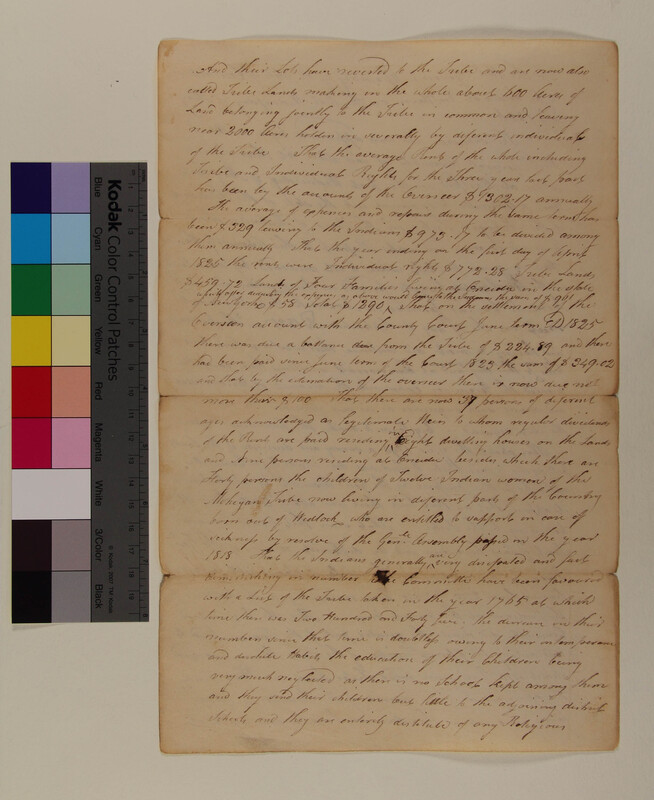 And their Lots have reverted to the Tribe and are now also
called Tribe Lands making in the whole about 600 Acres of
Land belonging jointly to the Tribe in common and leaving
near 2000 Acres holden in severalty by deferent individuals
of the Tribe That the average Rent of the whole including
Tribe and Individuals Rights for the Three years last past
has been by the accounts of the Overseer $1302.17 annually
The average of expences and repairs during the same term has
been $329 leaving to the Indians $973.17 to be divided among
them annually That the year ending on the first day of April
1825 the rent were Individual rights $772.28 Tribe Lands
$459.72 Lands of Four Families living at Oneida in the state
which after deducting the expences as above would leave to the the sum of $961
of New York $58 Total $1290 That on the settlement of the
Overseers account with the County Court June term AD 1825
there was due a ballance due from the Tribe of $224.89 and there
had been paid since June term of the Court 1823 the sum of $349.02
and that by the estimation of the overseer there is now due not
more than $100 That there are now 37 persons of deferent
ages acknowledged as legitimate Heirs to whom regular dividends
of the Rent are paid residing in Eight dwelling houses on the Lands
and Nine persons residing at Oneida besides which there are
Forty persons the children of Twelve Indian women of the
Mohegan Tribe now living in deferent parts of the Country
born out of Wedlock who are entitled to support in case of
sickness by resolve of the Genll Assembly passed in the year
1818 That the Indians generally are very dissipated and fast
diminishing in number The Committee have been favoured
with a List of the Tribe taken in the year 1765 at which
time there was Two Hundred and Forty five The decrease in their
numbers since that time is doubtless owing to their intemperance
and dissolute Habits the education of their Children being
very much neglected as there is no School kept among them
and they send their children but little to the adjoining district
Schools and they are entirely destitute of any Religious